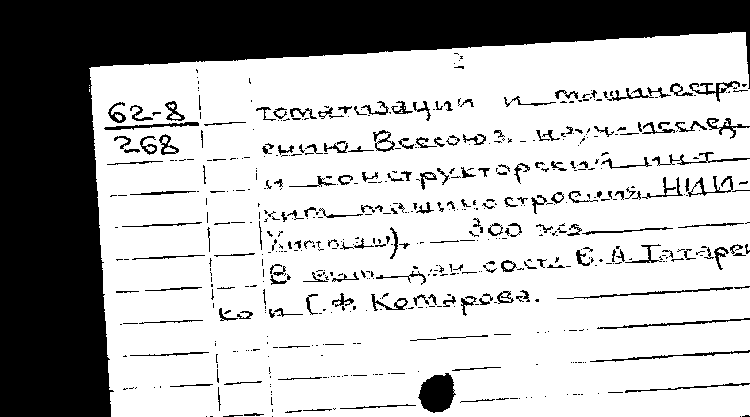 2
62-8
268
томатизации и машиностро-
ению. Всесоюз. науч.-исслед.
и конструкторский ин-т
хим. машиностроения. НИИ-
Химмаш). 300 экз.
В вып. дан сост.: Е.А. Татарен
ко и Г.Ф. Комарова.